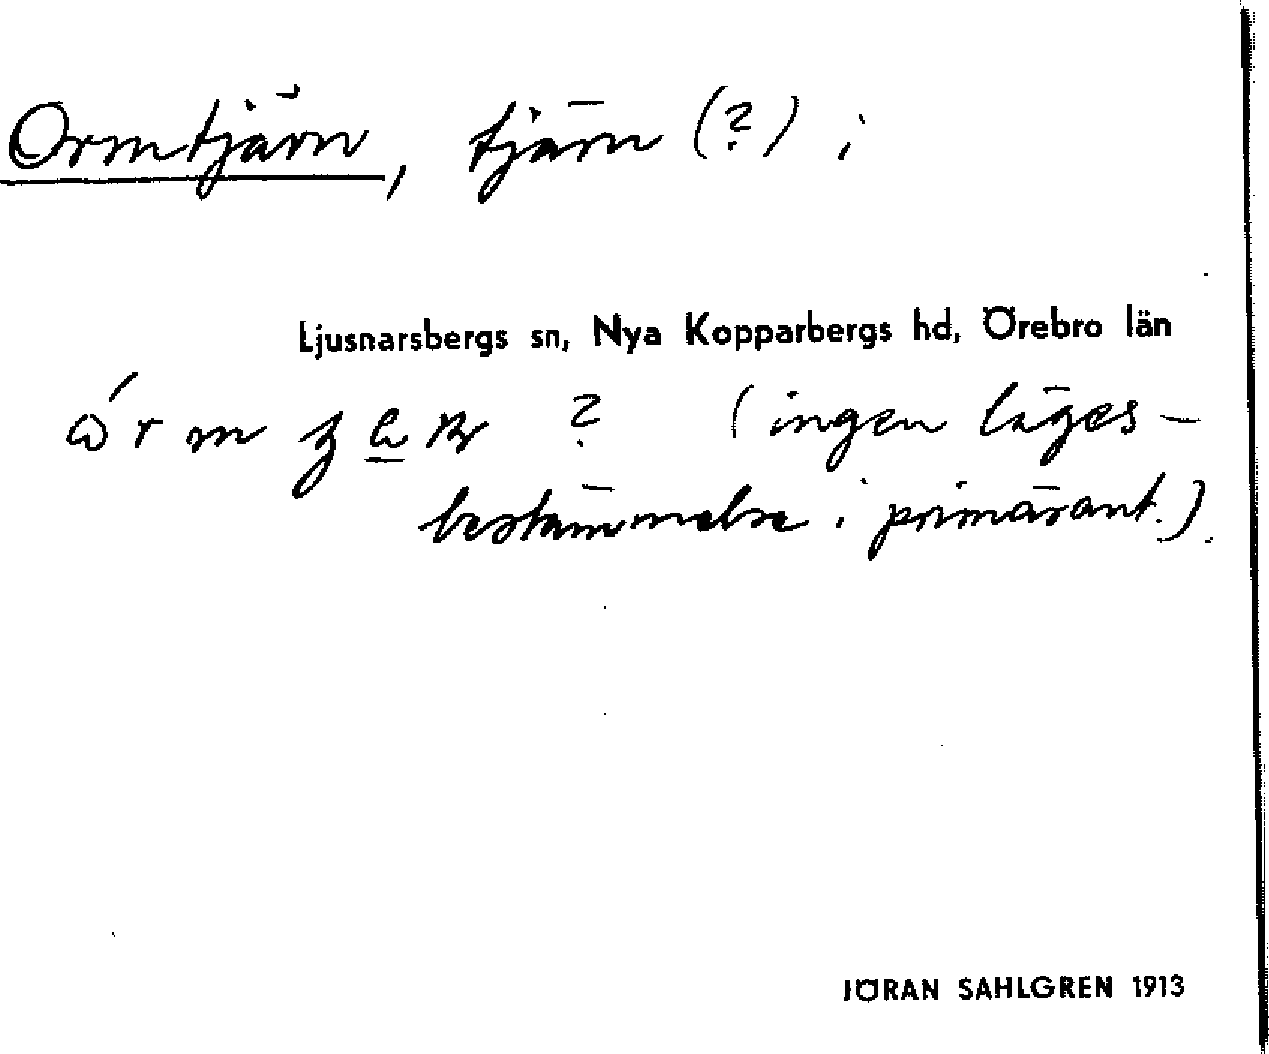 Ormtjärn, tjärn (?) i
Ljusnarsbergs sn, Nya Kopparbergs hd, Örebro län
? (ingen läges-
bestämmelse i primärant.)
JÖRAN SAHLGREN 1913